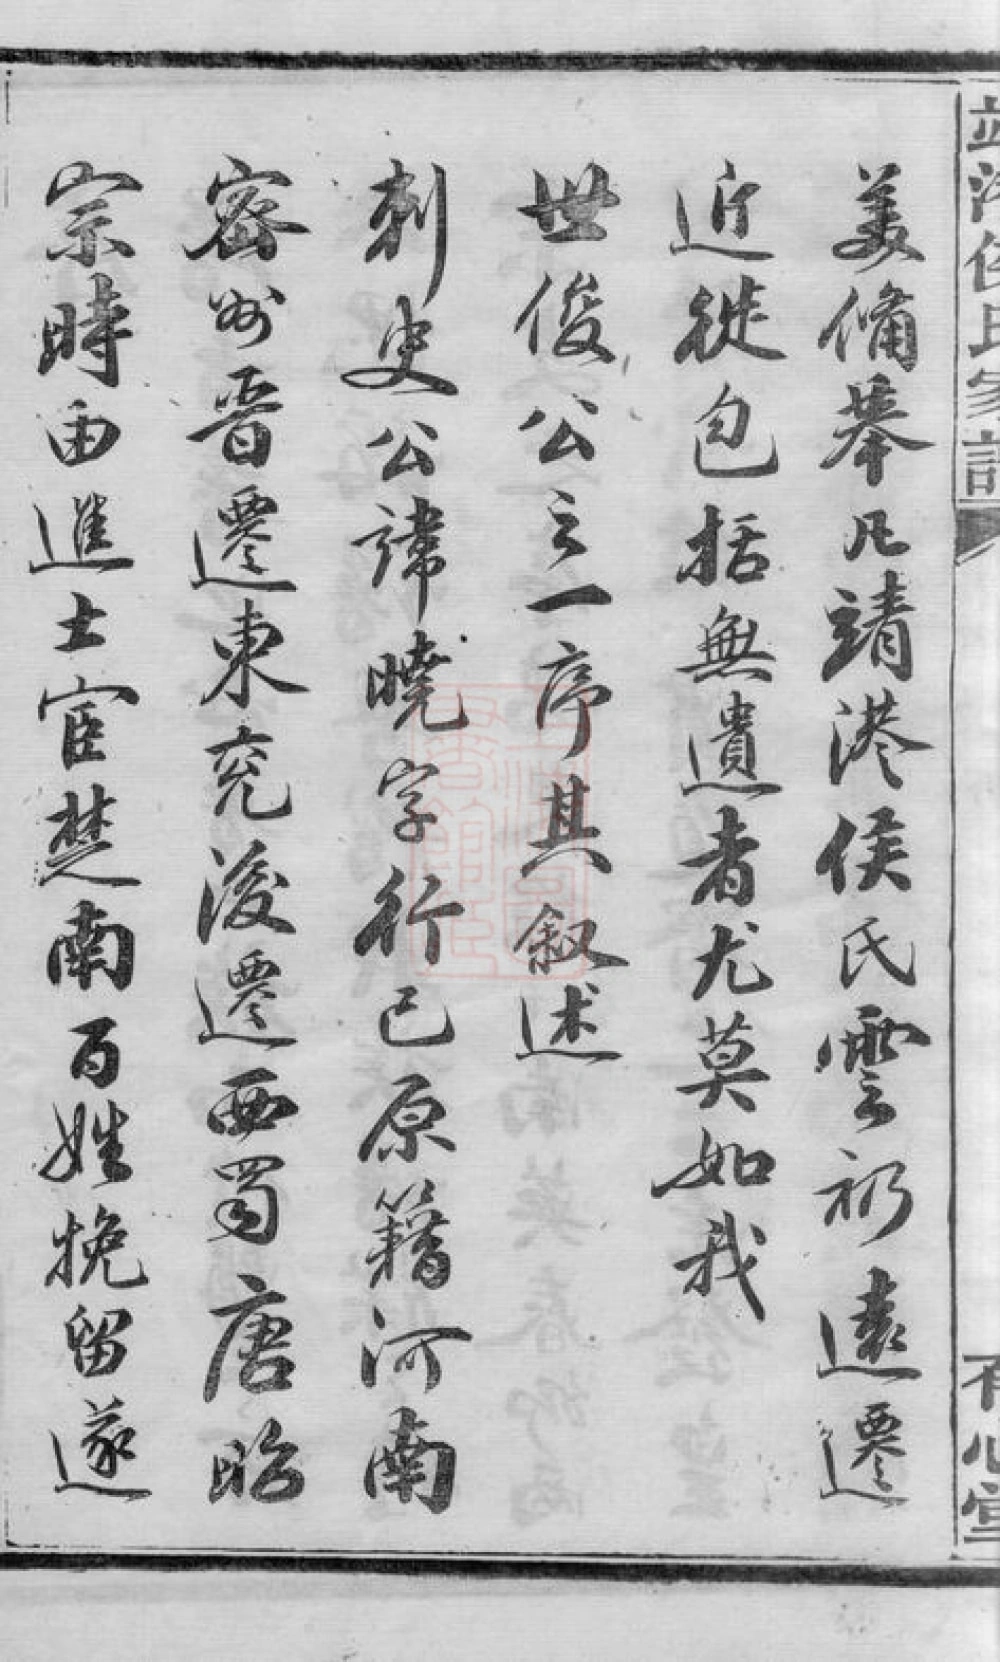 靖港侯氏家譜
有心堂
美備舉凡靖港侯氏雲礽遠遷
近徙包括無遺者尤莫如我
世俊公之一序其叙述
刺史公諱曉字行己原籍河南
密州晉遷東兖後遷西蜀唐昭
宗時由進士宦楚南百姓挽留遂